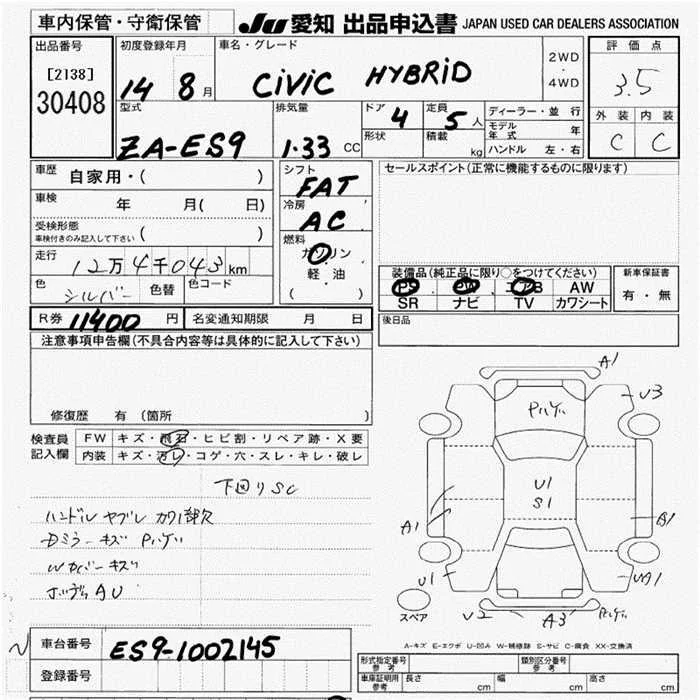 車内保管・守衛保管
Ju 愛知 出品申込書 JAPAN USED CAR DEALERS ASSOCIATION
出品番号
[2138]
30408
初度登録年月
14 8 月
車名・グレード
CIVIC HYBRID
2WD
・
4WD
評価点
3.5
外装 内装
C C
型式
ZA-ES9
排気量
1.33 CC
ドア 4
形状
定員 5 人
積載 kg
ディーラー・並行
モデル年式 年
ハンドル 左・右
車歴 自家用・( )
車検 年 月( 日)
受検形態
車検付きのみ記入して下さい ( )
走行 12万4千043 km
色 シルバー 色替 色コード
シフト FAT
冷房 AC
燃料 ガソリン
軽・油
( )
セールスポイント(正常に機能するものに限ります)
装備品(純正品に限り○をつけてください)
PS PW エアB AW
SR ナビ TV カワシート
新車保証書
有・無
R券 11400 円 名変通知期限 月 日
後日品
注意事項申告欄(不具合内容等は具体的に記入して下さい)
修復歴 有 (箇所 )
検査員
記入欄
FW キズ・飛石・ヒビ割・リペア跡・X要
内装 キズ・汚レ・コゲ・穴・スレ・キレ・破レ
下回りSC
ハンドル ヤブレ カワ1部欠
Dミラーキズ Pハゲ
Wカバーキズ
ボディAU
A1
U3
Pハゲ
U1
S1
A1
B1
U1
UA1
スペア
U2 A3 Pハゲ
A-キズ E-エクボ U-凹み W-補修跡 S-サビ C-腐食 XX-交換済
車台番号 ES9-1002145
登録番号
形式指定番号
参考
類別区分番号
参考
車庫証明用
参考
長さ cm 幅 cm 高さ cm